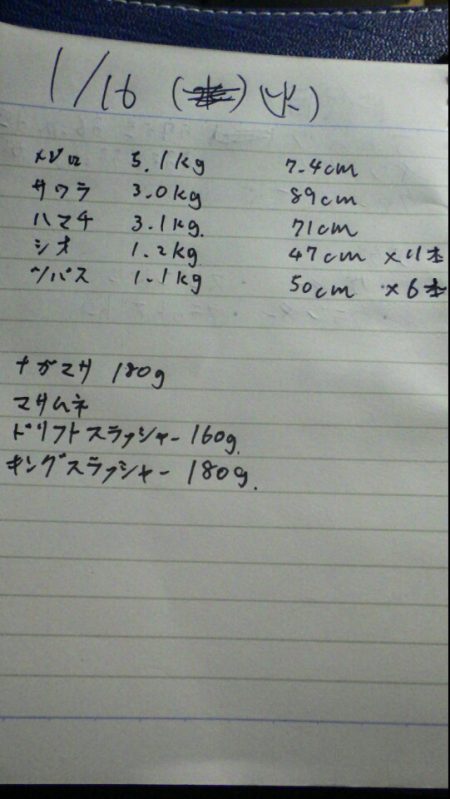 1/16 (火)
メジロ 5.1kg 7.4cm
サワラ 3.0kg 89cm
ハマチ 3.1kg. 71cm
シオ 1.2kg 47cm ×11本
ツバス 1.1kg 50cm ×6本
ナガマサ 180g
マサムネ
ドリフトスラッシャー 160g.
キングスラッシャー 180g.